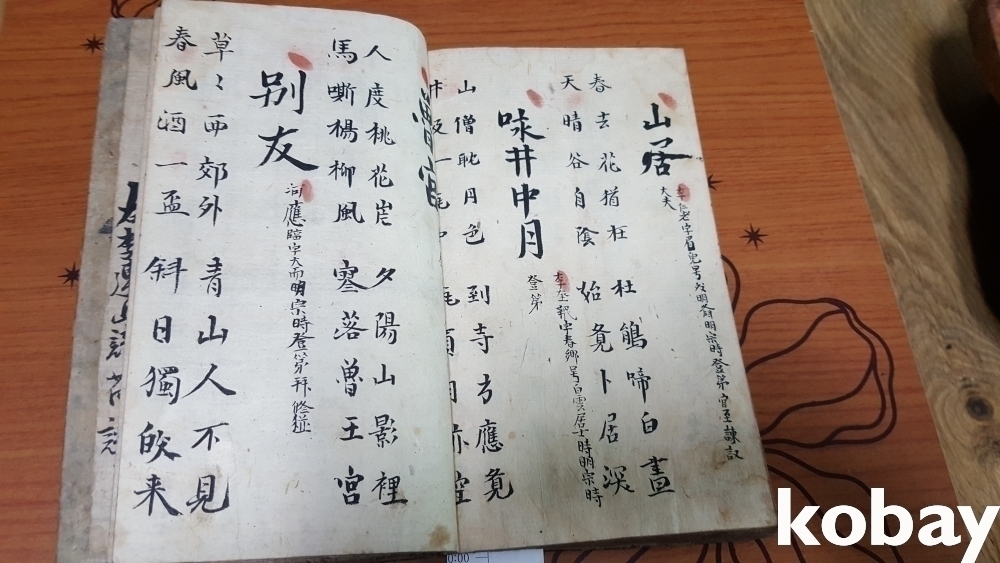 山居
李仁老字眉叟号双明斎明宗時登第官至諫議
大夫
春去花猶在 杜鵑啼白晝
天晴谷自陰 始覚卜居深
咏井中月
李奎報字春卿号白雲居士時明宗時
登第
山僧耽月色 到寺方應覚
汲一 傾月亦空
人度桃花岸 夕陽山影裡
馬嘶楊柳風 寥落曾王宮
别友
河應臨字大而明宗時登第拜修撰
草〻西郊外 青山人不見
春風酒一盃 斜日獨皈来
kobay